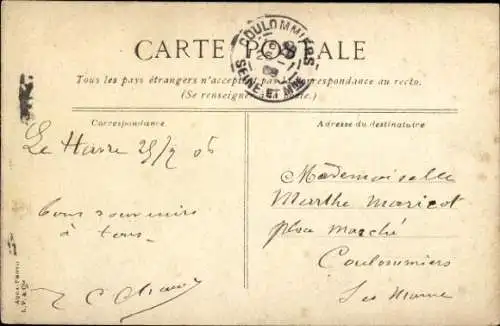 CARTE POSTALE
COULOMMIERS
SEINE ET MNE
Tous les pays étrangers n'acceptent pas la correspondance au recto.
(Se renseigner
Correspondance
Adresse du destinataire
Le Havre 25/2 08
Mademoiselle
Marthe Maricot
place marché
Coulommiers
Sne Marne
Bons souvenirs
à tous
C
AQUA-PHOTO
L.V. & Cie